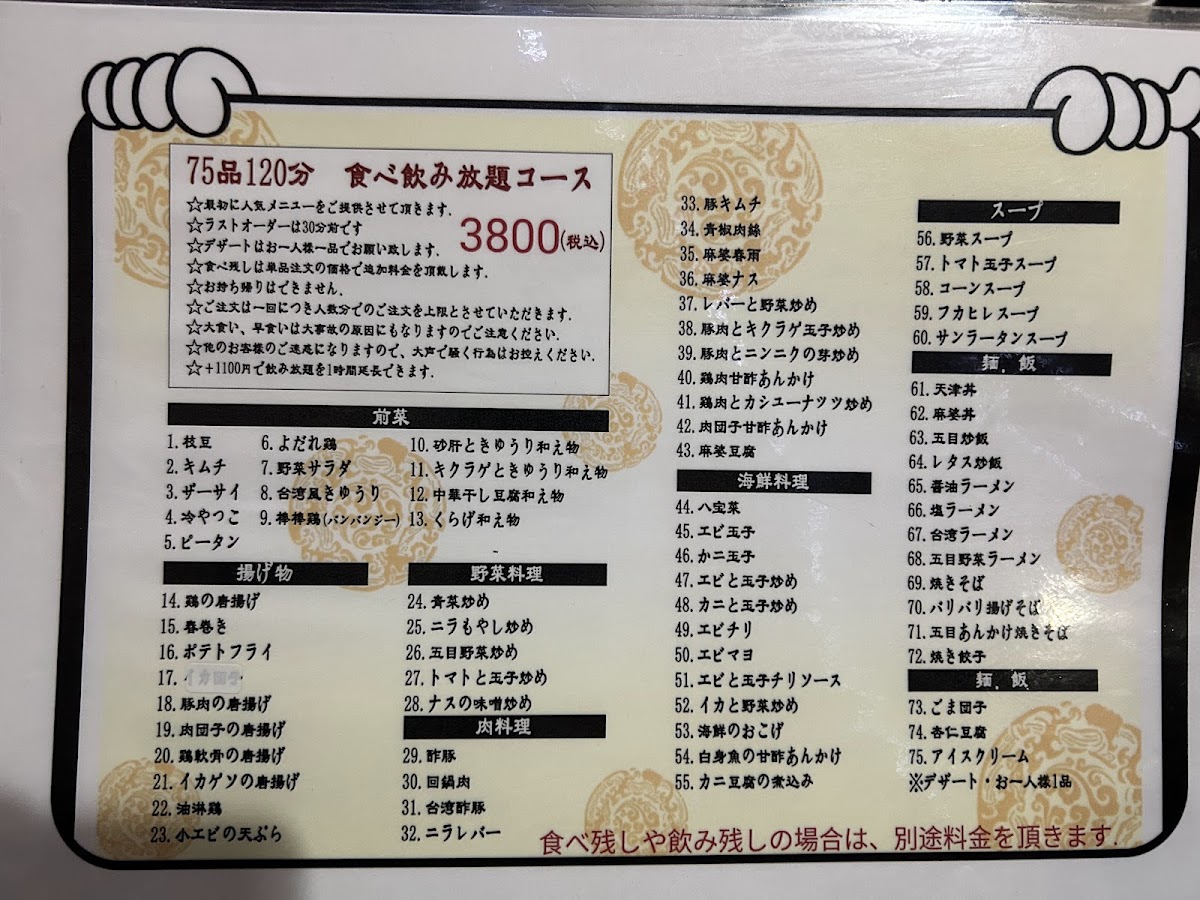 75品120分 食べ飲み放題コース
☆最初に人気メニューをご提供させて頂きます.
☆ラストオーダーは30分前です
☆デザートはお一人様一品でお願い致します.
3800(税込)
☆食べ残しは単品注文の価格で追加料金を頂戴します.
☆お持ち帰りはできません.
☆ご注文は一回につき人数分でのご注文を上限とさせていただきます.
☆大食い、早食いは大事故の原因にもなりますのでご注意ください.
☆他のお客様のご迷惑になりますので、大声で騒ぐ行為はお控えください.
☆+1100円で飲み放題を1時間延長できます.
前菜
1.枝豆
2.キムチ
3.ザーサイ
4.冷やっこ
5.ピータン
6.よだれ鶏
7.野菜サラダ
8.台湾風きゆうり
9.棒棒鶏(バンバンジー)
10.砂肝ときゆうり和え物
11.キクラゲときゆうり和え物
12.中華干し豆腐和え物
13.くらげ和え物
揚げ物
14.鶏の唐揚げ
15.春巻き
16.ポテトフライ
17.イカ団子
18.豚肉の唐揚げ
19.肉団子の唐揚げ
20.鶏軟骨の唐揚げ
21.イカゲソの唐揚げ
22.油淋鶏
23.小エビの天ぷら
野菜料理
24.青菜炒め
25.ニラもやし炒め
26.五目野菜炒め
27.トマトと玉子炒め
28.ナスの味噌炒め
肉料理
29.酢豚
30.回鍋肉
31.台湾酢豚
32.ニラレバー
33.豚キムチ
34.青椒肉絲
35.麻婆春雨
36.麻婆ナス
37.レバーと野菜炒め
38.豚肉とキクラゲ玉子炒め
39.豚肉とニンニクの芽炒め
40.鶏肉甘酢あんかけ
41.鶏肉とカシューナッツ炒め
42.肉団子甘酢あんかけ
43.麻婆豆腐
海鮮料理
44.八宝菜
45.エビ玉子
46.かニ玉子
47.エビと玉子炒め
48.カニと玉子炒め
49.エビチリ
50.エビマヨ
51.エビと玉子チリソース
52.イカと野菜炒め
53.海鮮のおこげ
54.白身魚の甘酢あんかけ
55.カニ豆腐の煮込み
スープ
56.野菜スープ
57.トマト玉子スープ
58.コーンスープ
59.フカヒレスープ
60.サンラータンスープ
麺.飯
61.天津丼
62.麻婆丼
63.五目炒飯
64.レタス炒飯
65.醤油ラーメン
66.塩ラーメン
67.台湾ラーメン
68.五目野菜ラーメン
69.焼きそば
70.バリバリ揚げそば
71.五目あんかけ焼きそば
72.焼き餃子
麺.飯
73.ごま団子
74.杏仁豆腐
75.アイスクリーム
※デザート・お一人様1品
食べ残しや飲み残しの場合は、別途料金を頂きます.